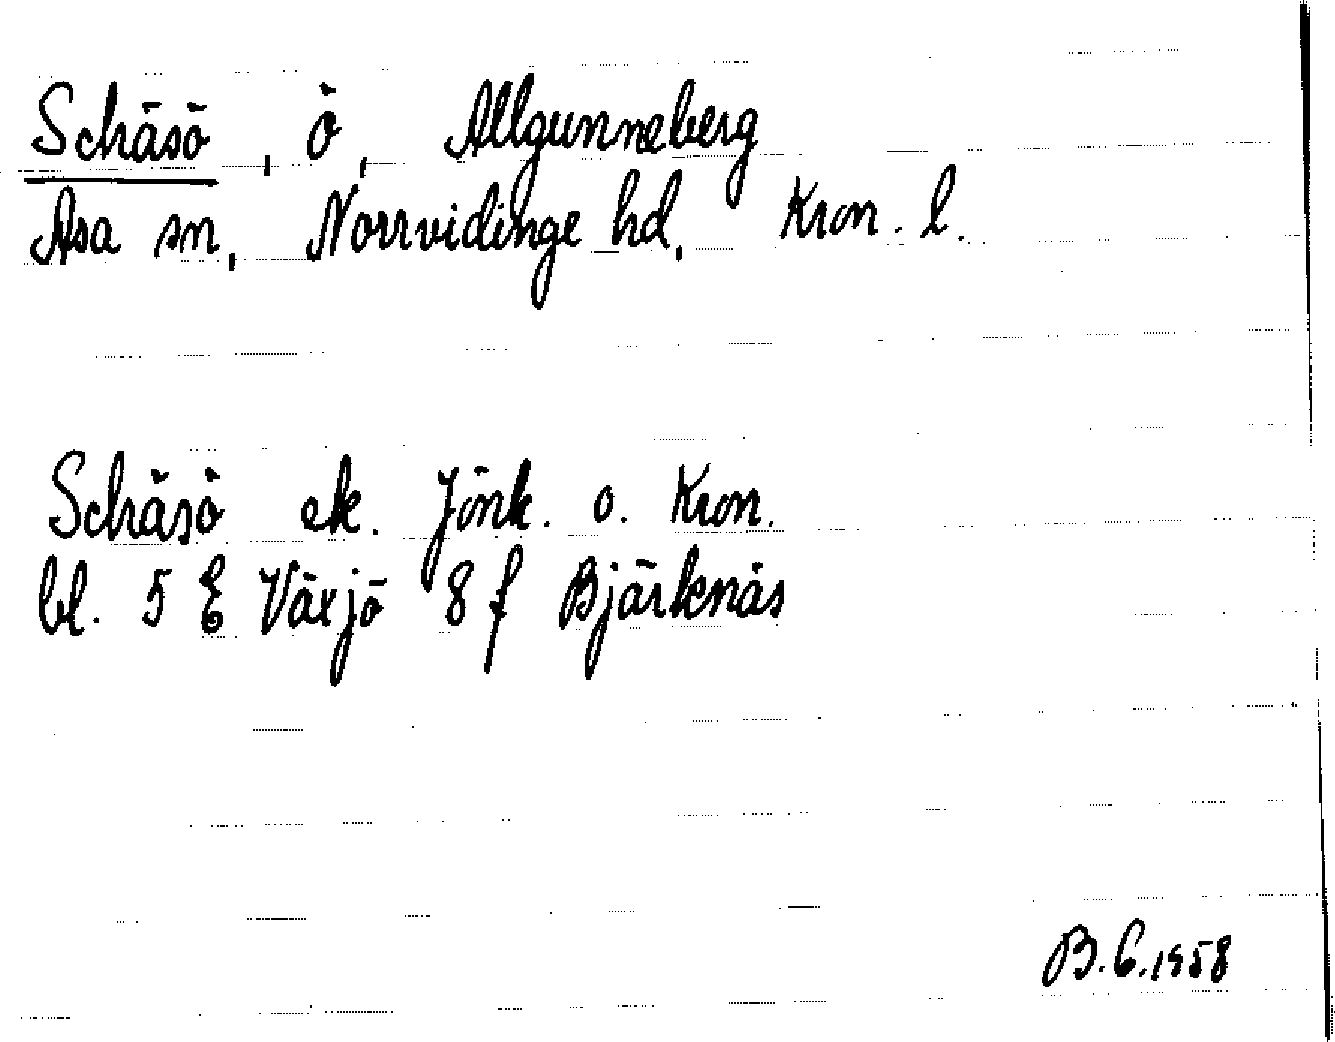 Schäsö, ö, Allgunneberg
Asa sn, Norrvidinge hd, Kron. l.
Schäsö ek. Jönk. o. Kron.
bl. 5 E Växjö 8 f Bjärknäs
B.E.1958